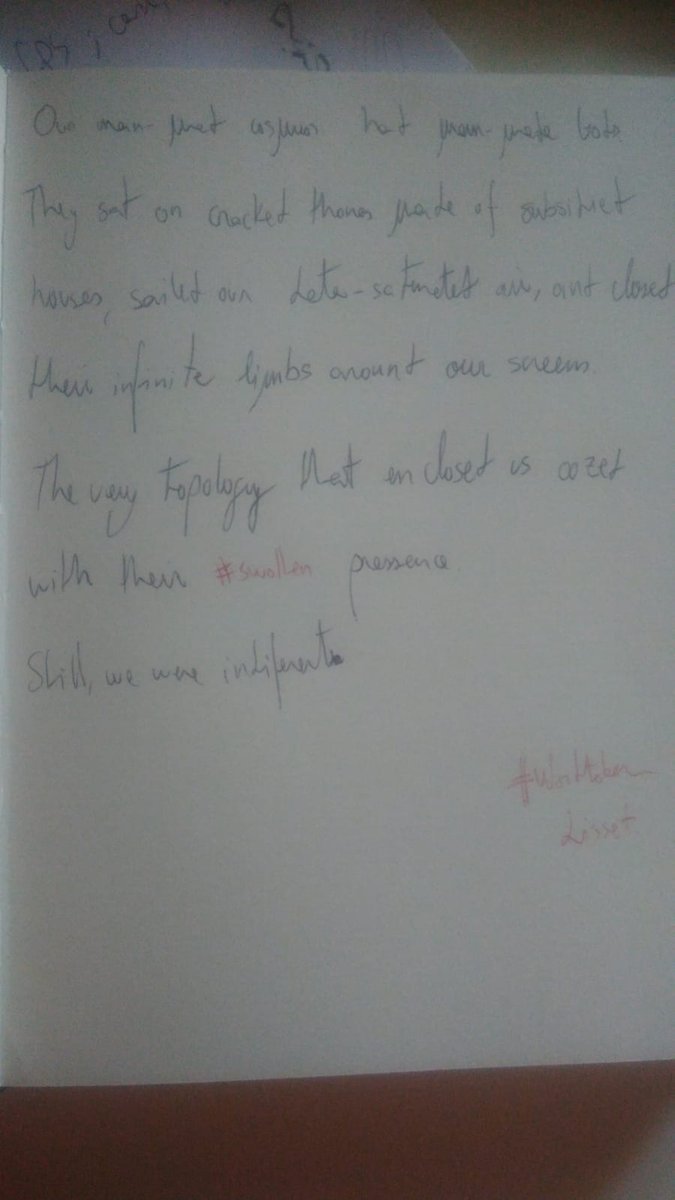 Our man-made cosmos had man-made Gods.
They sat on cracked thrones made of subsidued
houses, sailed our data-saturated air, and closed
their infinite limbs around our screens.
The very topology that enclosed us oozed
with their #swollen pressence.
Still, we were indiferent.
Lisset